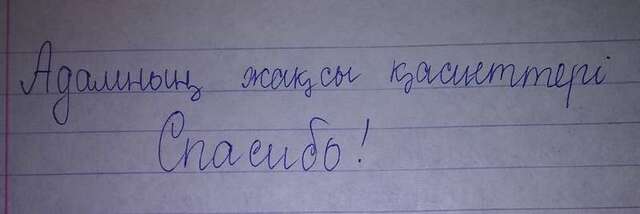 Адамның жақсы қасиеттері
Спасибо!